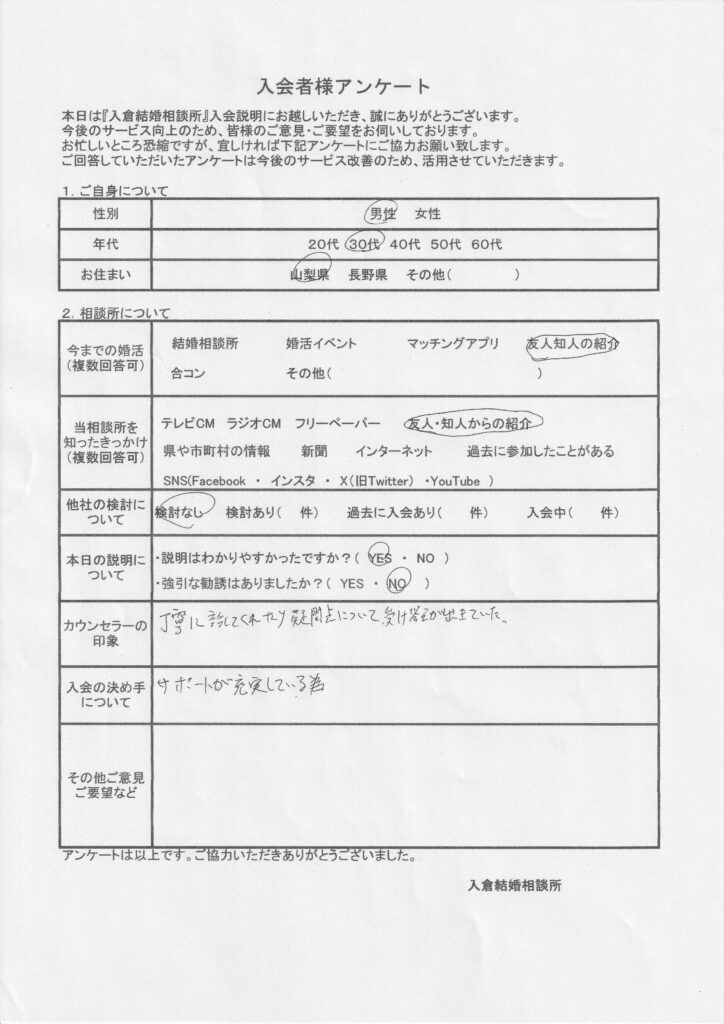 入会者様アンケート
本日は『入倉結婚相談所』入会説明にお越しいただき、誠にありがとうございます。
今後のサービス向上のため、皆様のご意見・ご要望をお伺いしております。
お忙しいところ恐縮ですが、宜しければ下記アンケートにご協力お願い致します。
ご回答していただいたアンケートは今後のサービス改善のため、活用させていただきます。
1. ご自身について
性別 男性 女性
年代 20代 30代 40代 50代 60代
お住まい 山梨県 長野県 その他( )
2. 相談所について
今までの婚活
(複数回答可)
結婚相談所 婚活イベント マッチングアプリ 友人知人の紹介
合コン その他( )
当相談所を
知ったきっかけ
(複数回答可)
テレビCM ラジオCM フリーペーパー 友人・知人からの紹介
県や市町村の情報 新聞 インターネット 過去に参加したことがある
SNS(Facebook ・ インスタ ・ X(旧Twitter) ・YouTube )
他社の検討に
ついて
検討なし 検討あり( 件) 過去に入会あり( 件) 入会中( 件)
本日の説明に
ついて
・説明はわかりやすかったですか?( YES ・ NO )
・強引な勧誘はありましたか?( YES ・ NO )
カウンセラーの
印象
丁寧に話してくれたり疑問点について受け答えが出来ていた。
入会の決め手
について
サポートが充実している為
その他ご意見
ご要望など
アンケートは以上です。ご協力いただきありがとうございました。
入倉結婚相談所